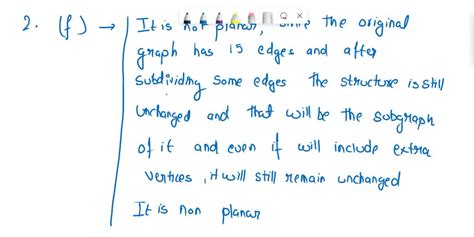 2. (f) → It is not planar, since the original
graph has 15 edges and after
subdividing some edges the structure is still
unchanged and that will be the subgraph
of it and even if will include extra
vertices, it will still remain unchanged
It is non planar